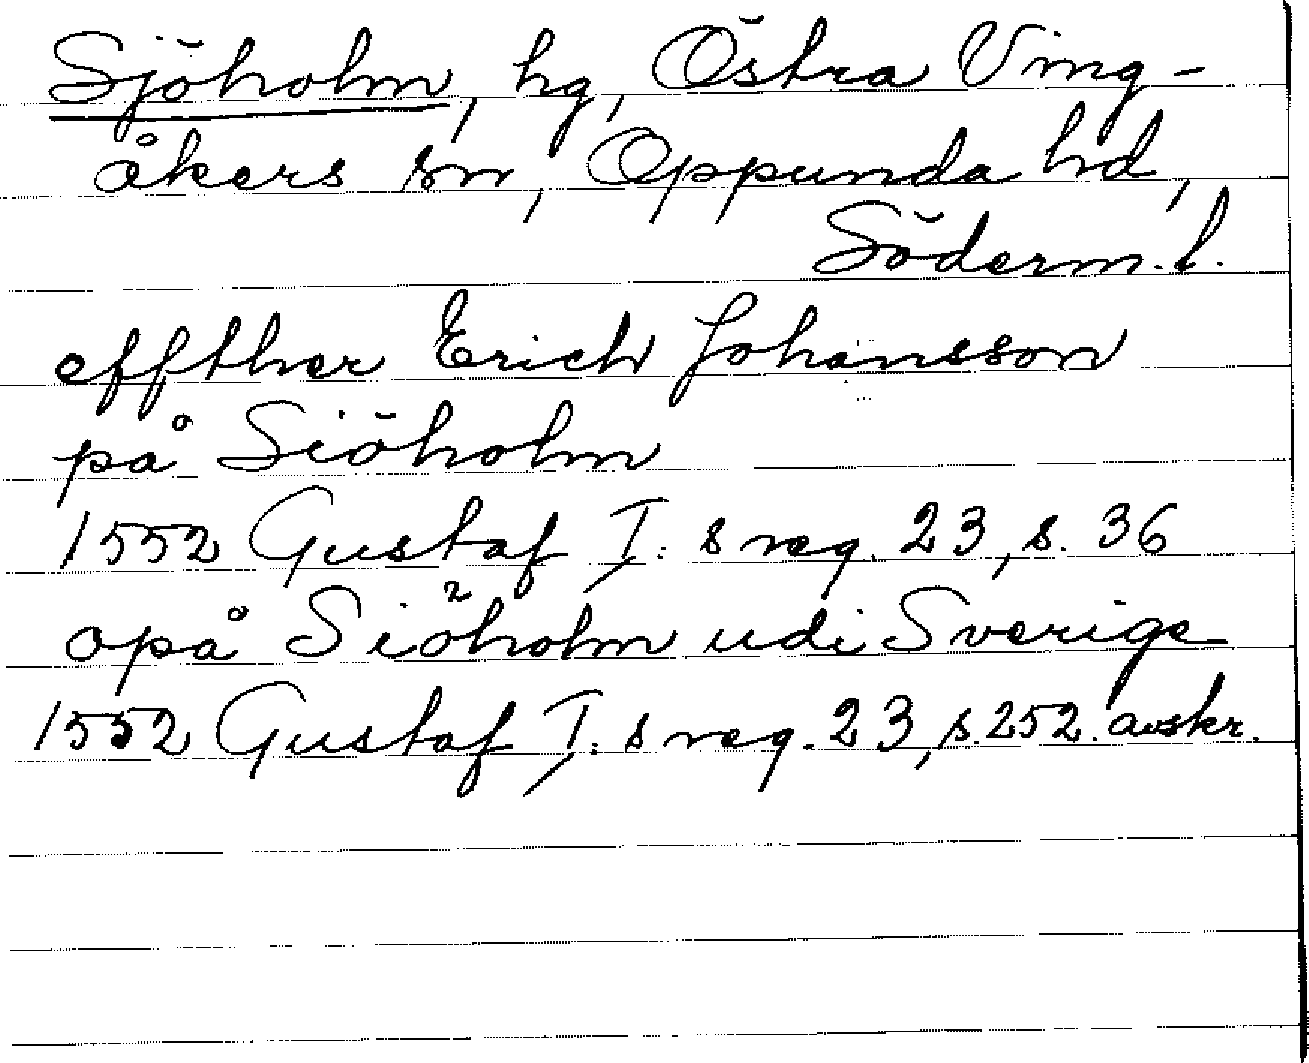 Sjöholm, hg, Östra Ving-
åkers sn, Oppunda hd,
Söderm. l.
effther Erich Johansson
på Siöholm
1552 Gustaf I:s reg. 23, s. 36
opå Siöholm udi Sverige
1552 Gustaf I:s reg. 23, s. 252. avskr.